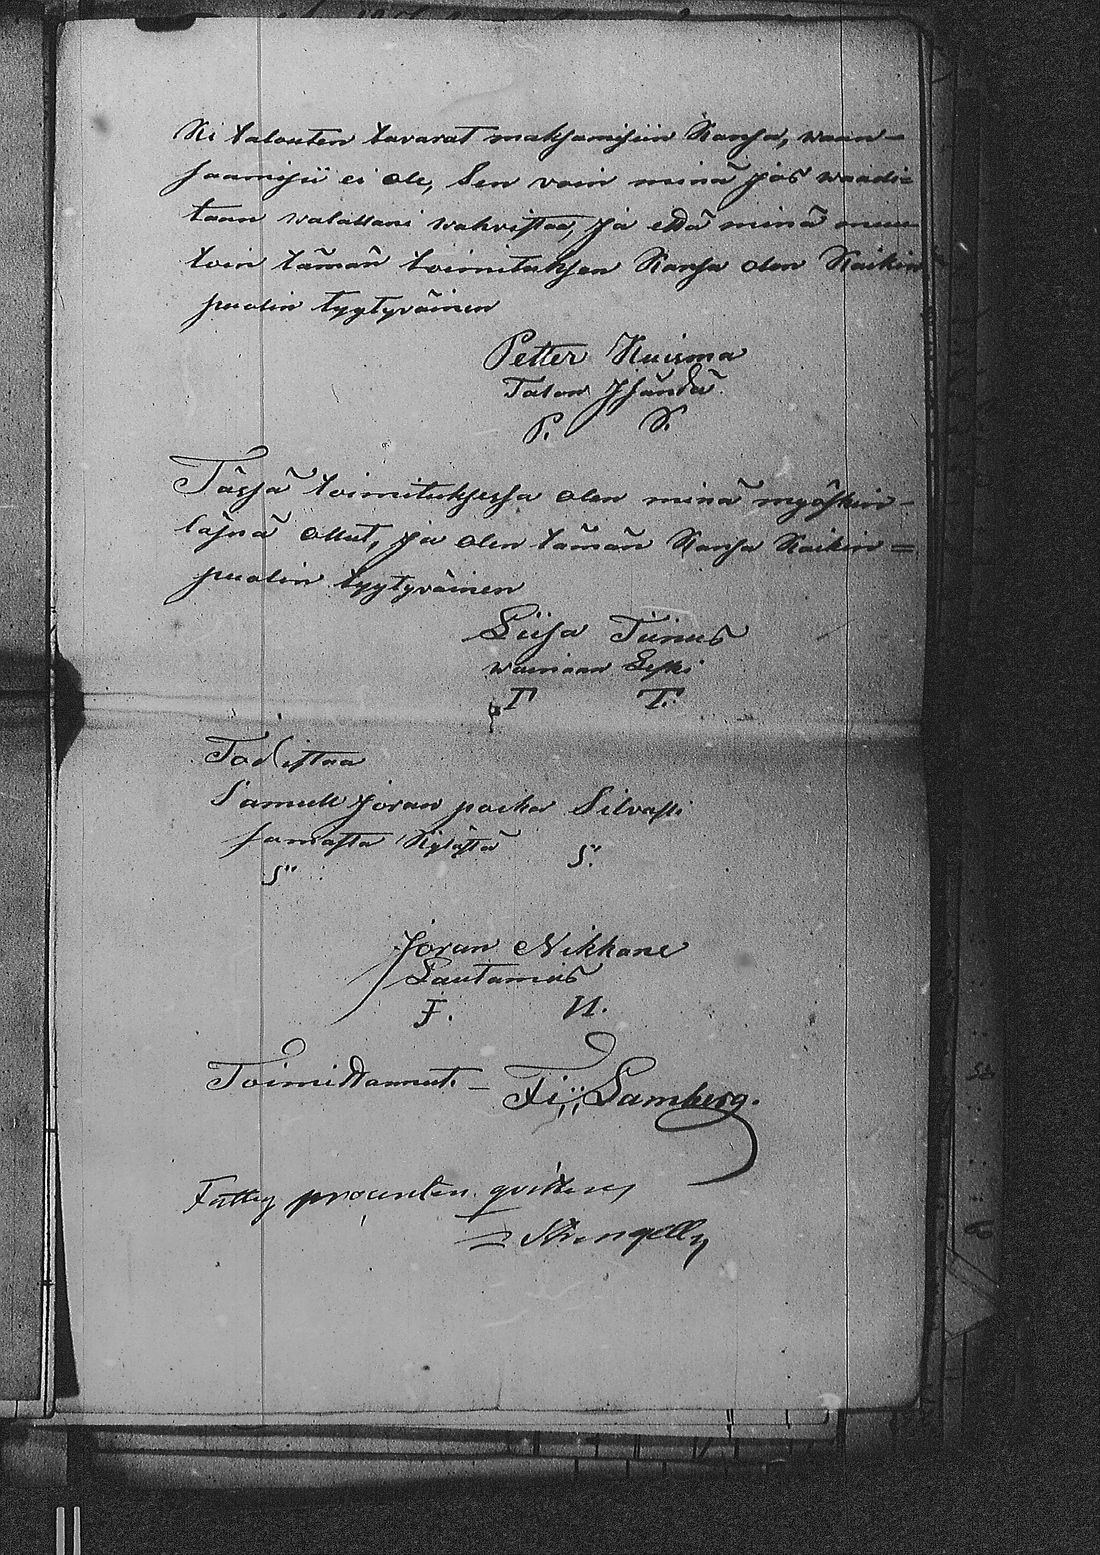 Ki talouten tavarat maksamisiin Kansa, waan=
saamisii ei ole, Sen voin minä jos waadi=
taan walallani wahvistaa, ja että minä muu
toin tämän toimituksen Kansa olen Kaikin
puolin tyytyväinen
Petter Kuisma
Talon Isändä
P. K.
Tässä toimituksessa olen minä myöskin=
läsnä ollut, ja olen tämän Kansa Kaikin=
puolin tyytyväinen
Liisa Tiinus
wainaan Leski
T T.
Todistaa
Samuel Joran poika Silvasti
samasta Kylästä
S. S.
Joran Nikkane
Lautamies
J. N.
Toimittannut. Lamberg.
Fattig procenten qvitteras